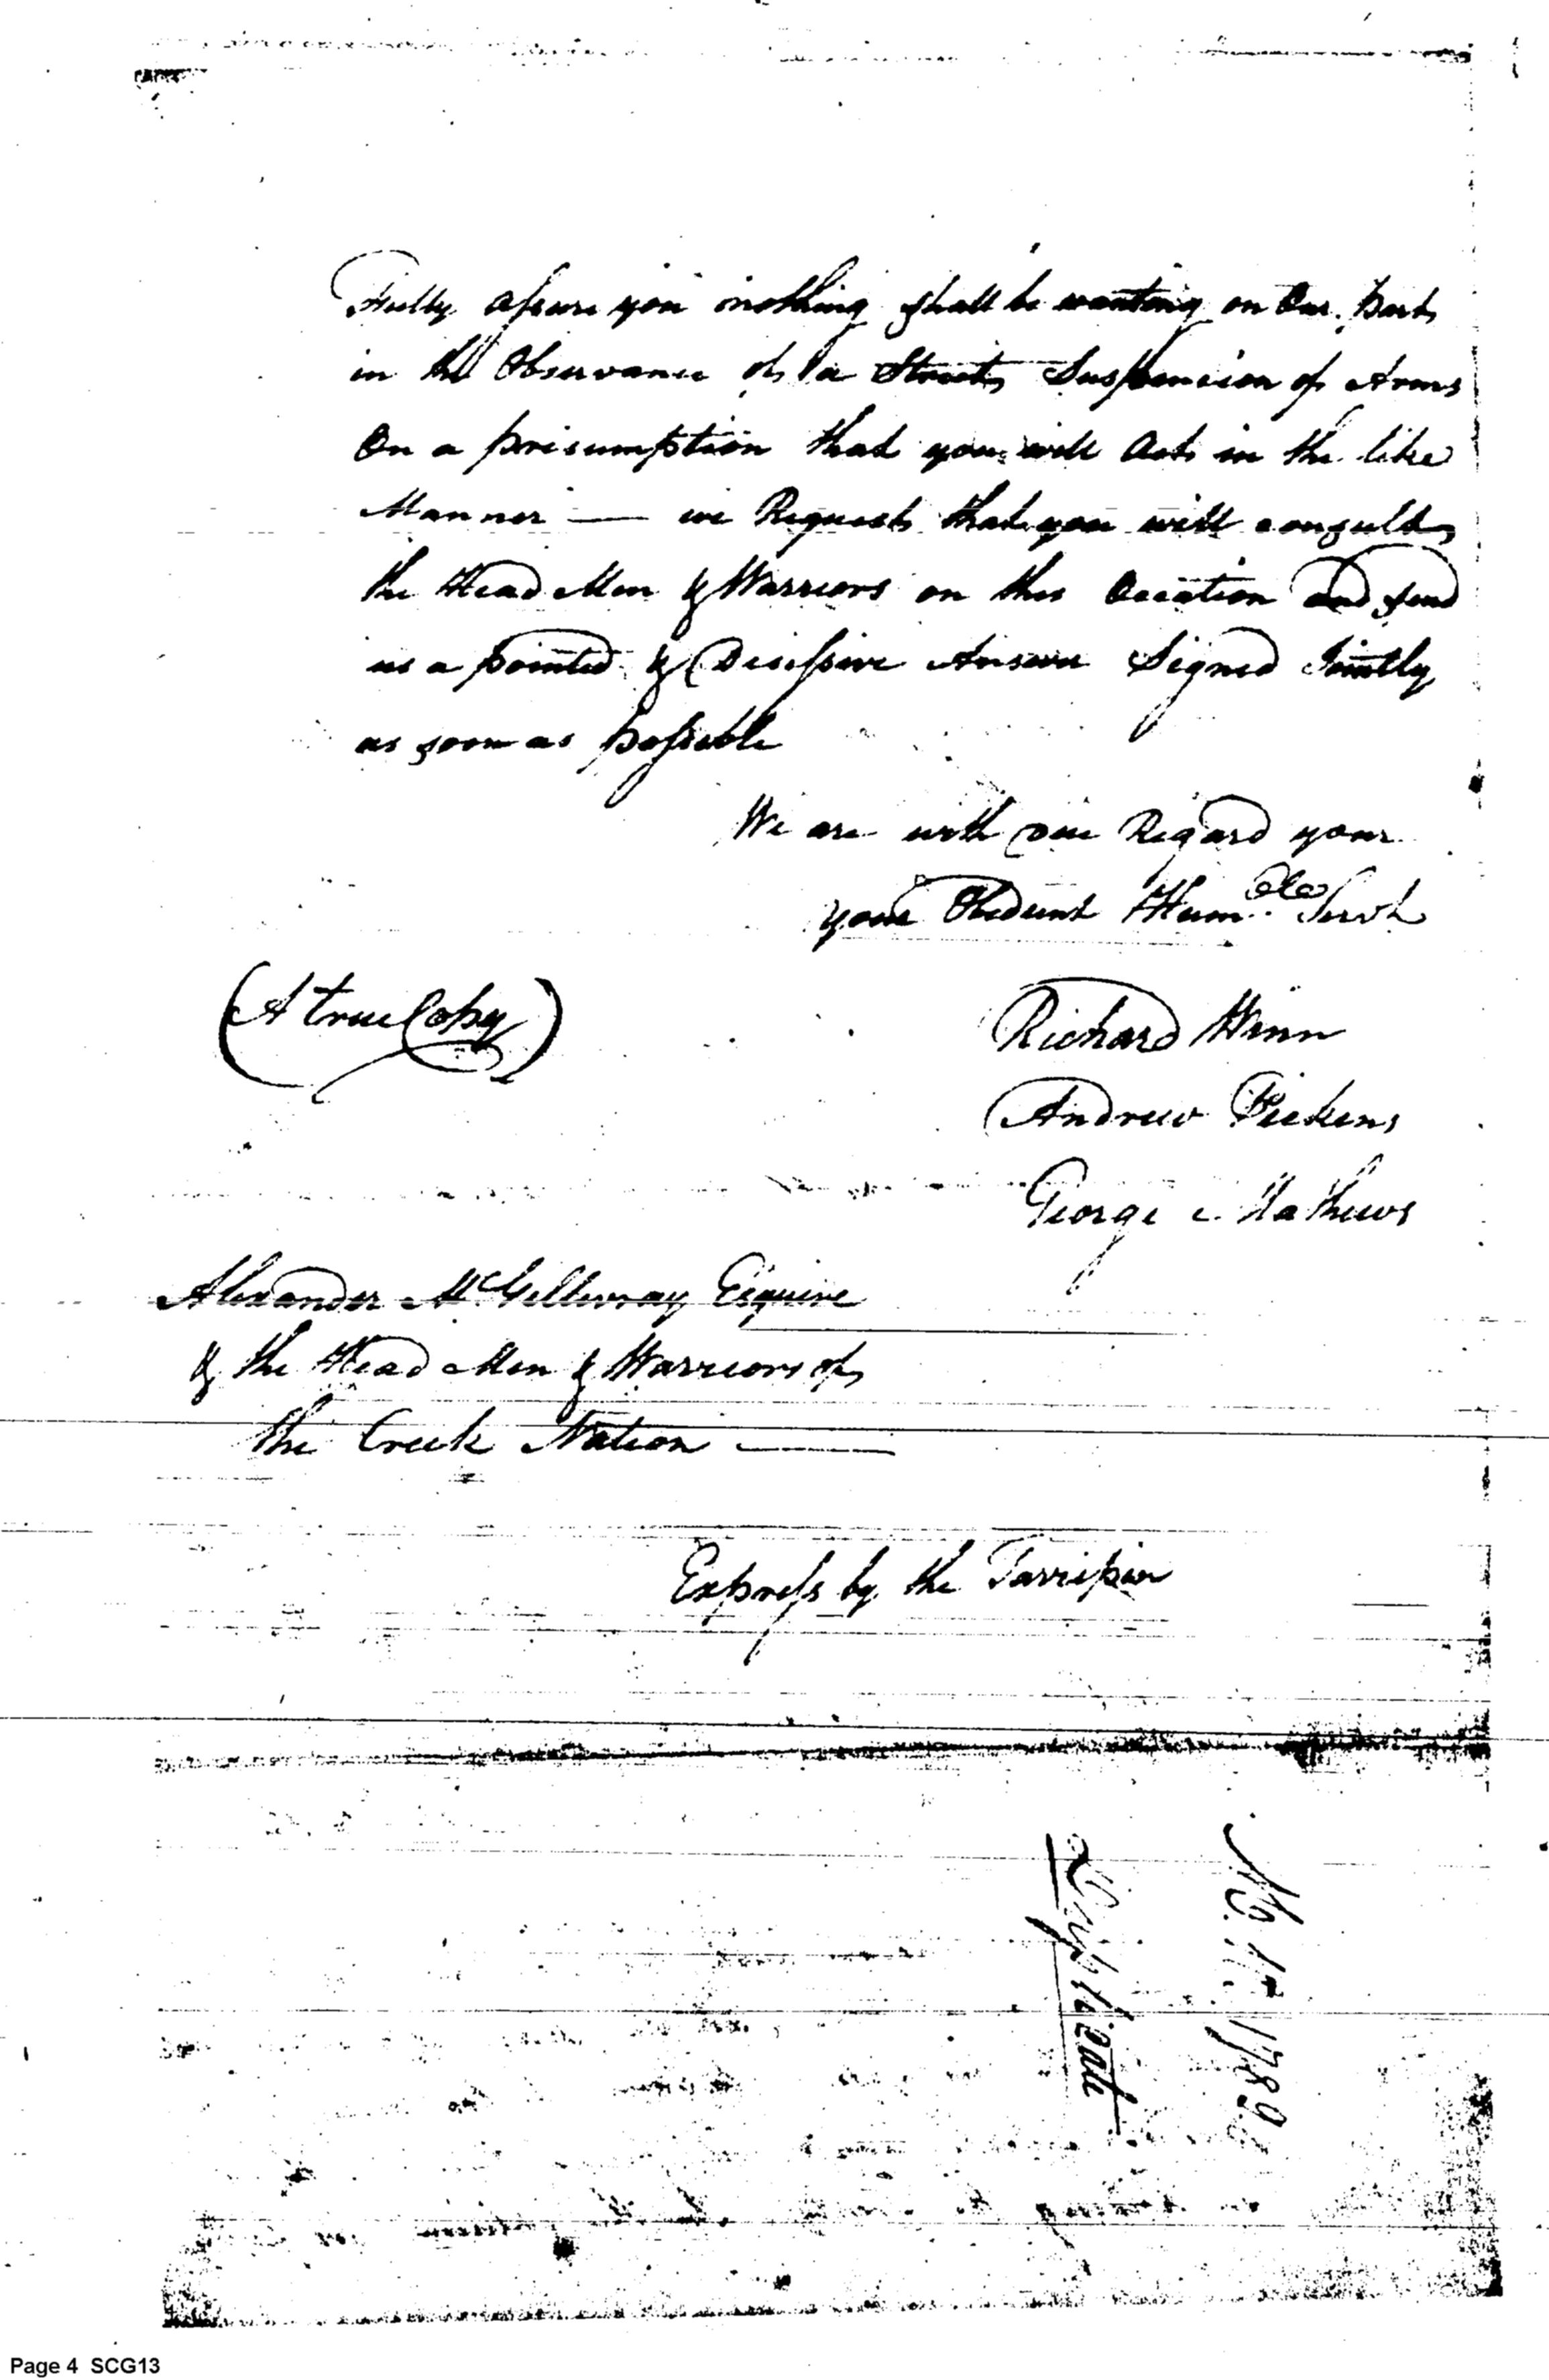 Fully assure you nothing shall be wanting on Our Part
in the Observance of a Strict Suspencion of Arms
On a prisumption that you will Act in the like
Manner — we Request that you will consult
the Head Men & Warriors on this Occation and send
us a pointed & Decissive Answer Signed Jointly
as soon as possible
We are with due Regard your
your Obedient Humble Servt
(A true Copy)
Richard Winn
Andrew Pickens
George Mathews
Alexander McGillevray Esquire
& the Head Men & Warriors of
the Creek Nation —
Express by the Tarripin
No 1789
Duplicate
Page 4 SCG13